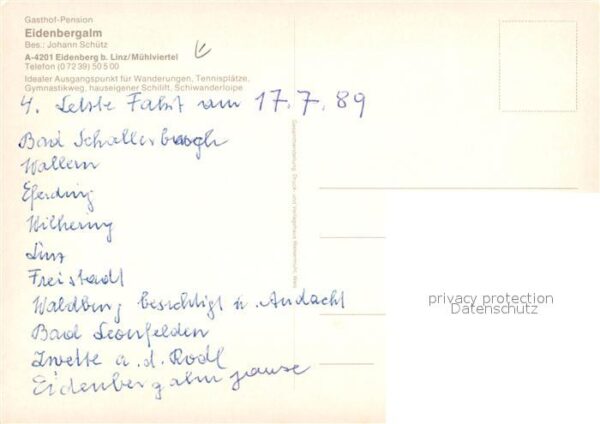 Gasthof-Pension
Eidenbergalm
Bes.: Johann Schütz
A-4201 Eidenberg b. Linz/Mühlviertel
Telefon (0 72 39) 50 5 00
Idealer Ausgangspunkt für Wanderungen, Tennisplätze,
Gymnastikweg, hauseigener Schilift, Schiwanderloipe
4. Letzte Fahrt am 17.7.89
Bad Schallerbach
Wallern
Eferding
Wilhering
Linz
Freistadt
Waldburg besichtigt u. Andacht
Bad Leonfelden
Zwettl a. d. Rodl
Eidenbergalm jause
privacy protection
Datenschutz